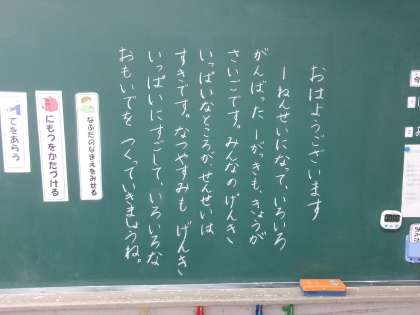 おはようございます
一ねんせいになって、いろいろ
がんばった一がっきも、きょうが
さいごです。みんなのげんき
いっぱいなところが、せんせいは
すきです。なつやすみも げんき
いっぱいにすごして、いろいろな
おもいでを つくっていきましょうね。
なふだのなまえをみせる
にもつをかたづける
てをあらう